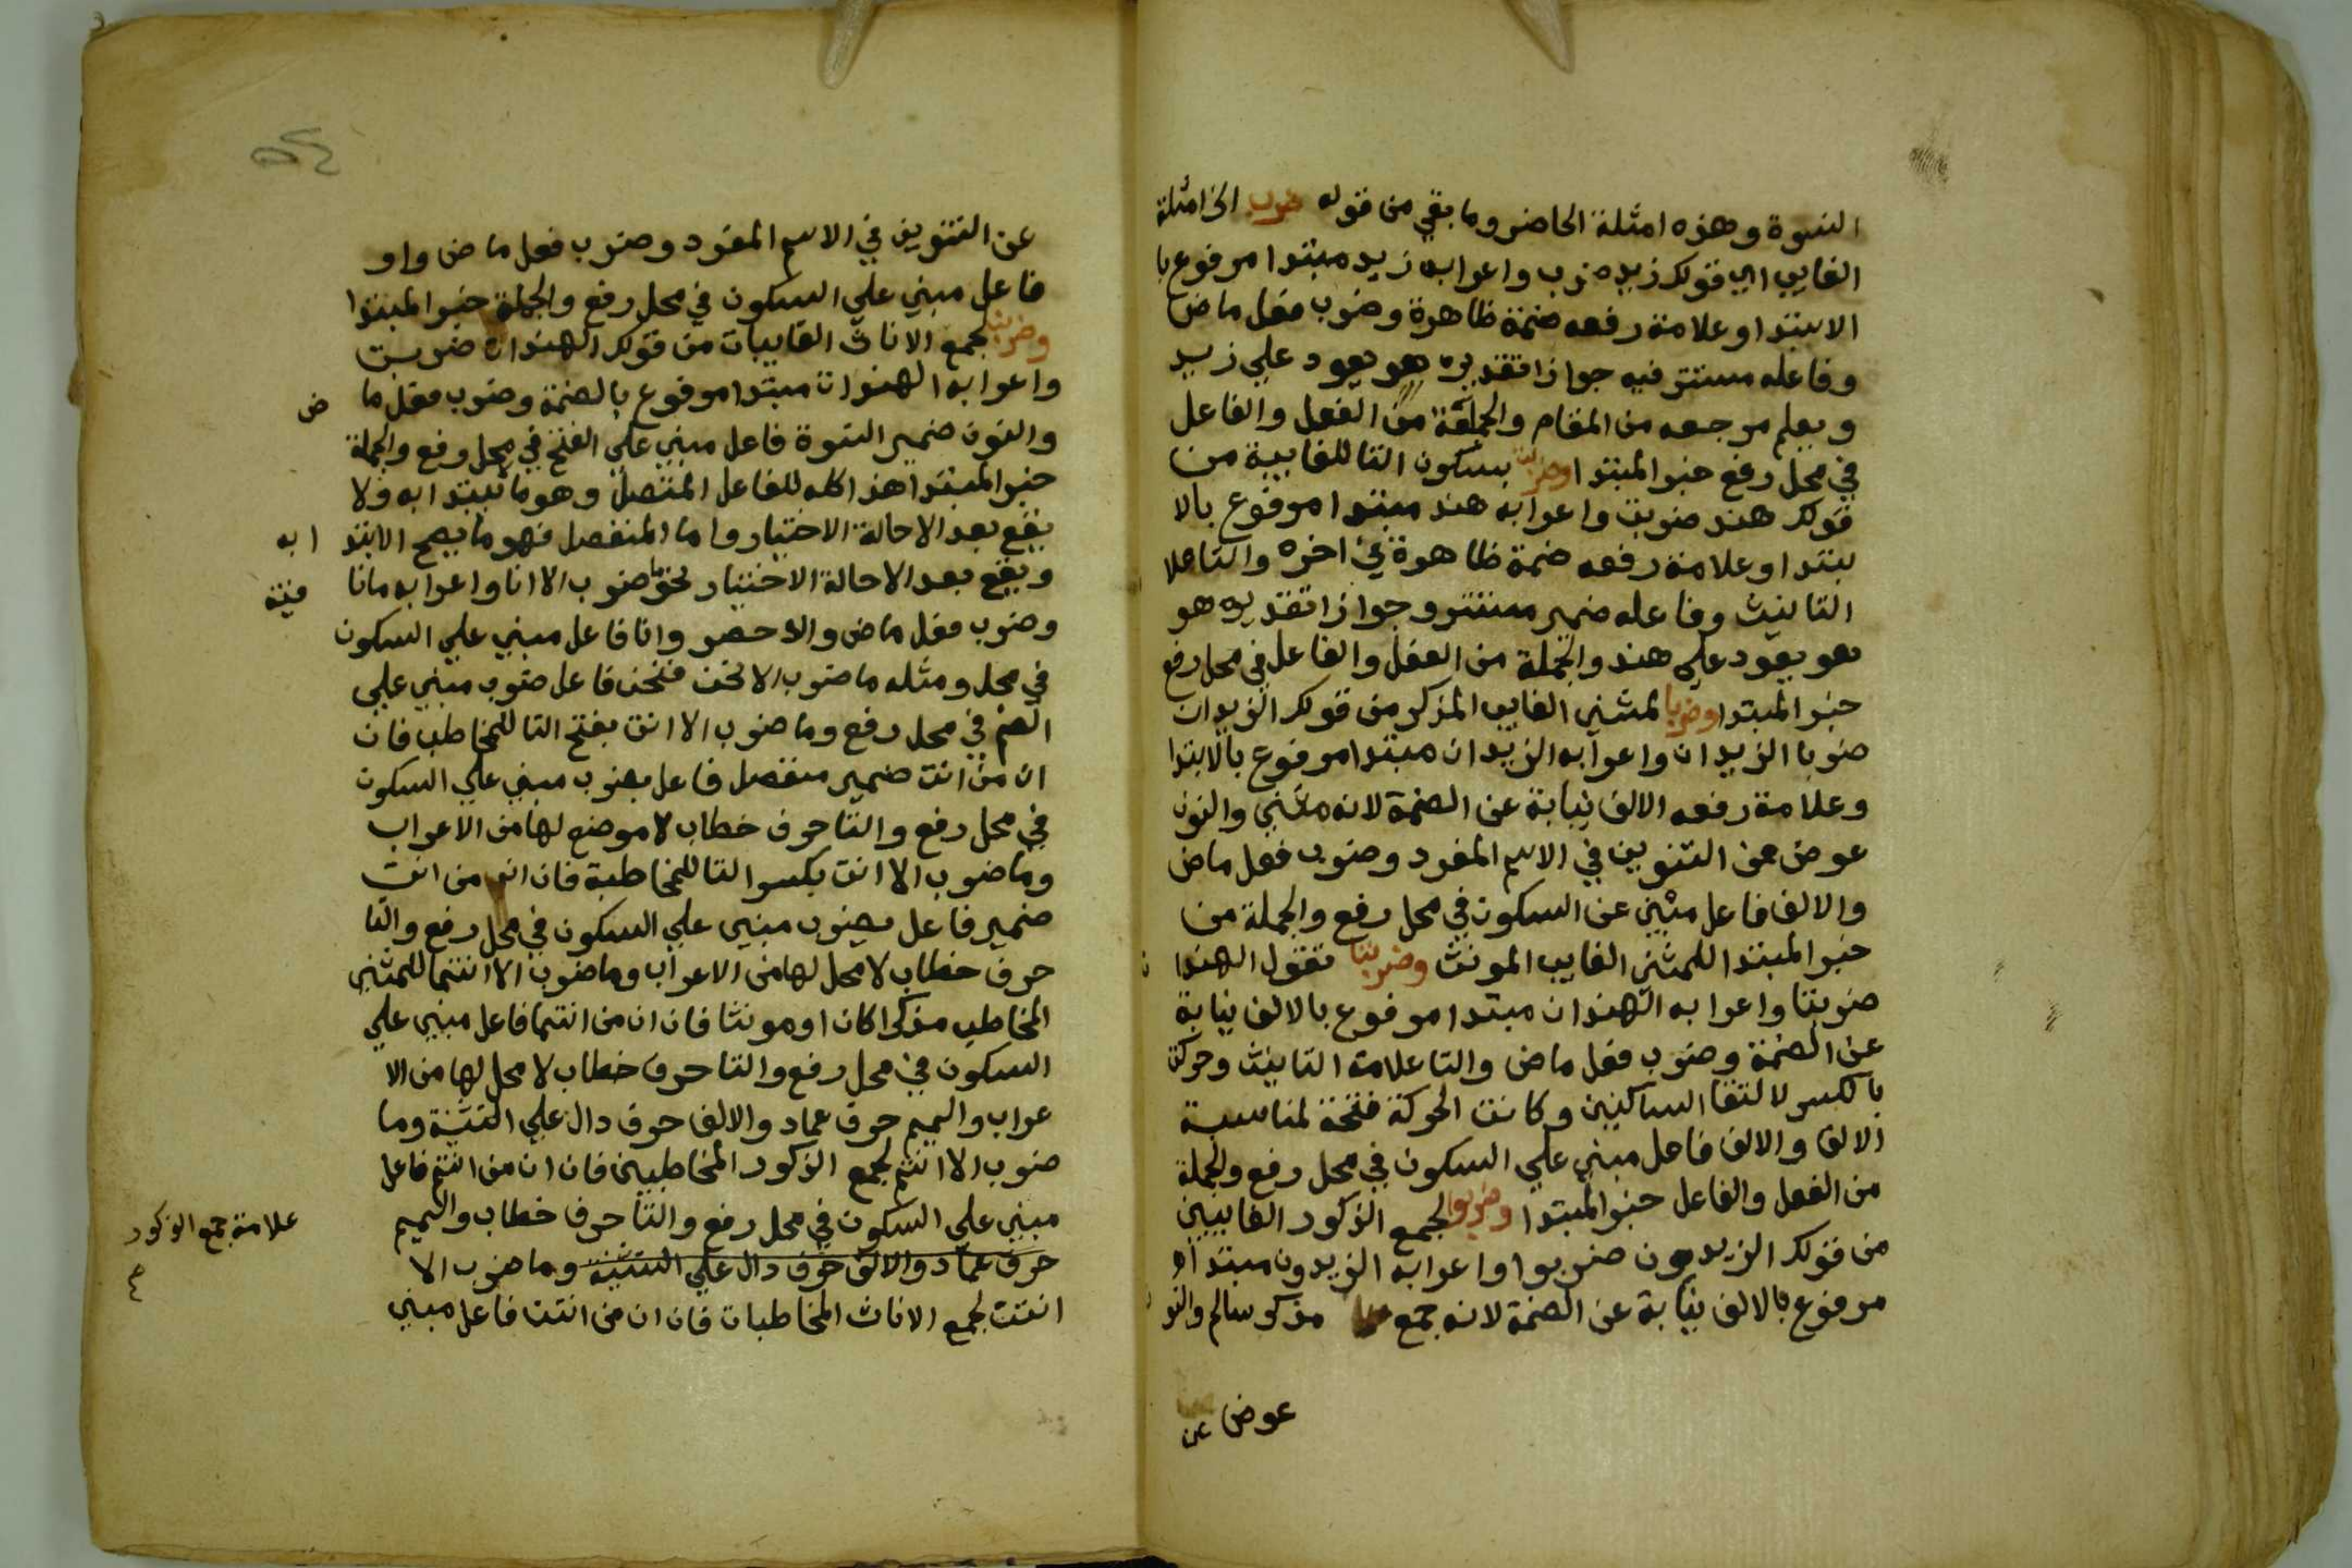 النسوة وهذه امثلة الحاضر وما بقي من قوله ضرب الى امثلة
الغايب اي قولك زيد ضرب واعرابه زيد مبتدا مرفوع با
الابتدا وعلامة رفعه ضمة ظاهرة وضرب فعل ماض
وفاعله مستتر فيه جوازا تقديره هو يعود علي زيد
ويعلم مرجعه من المقام والجملة من الفعل والفاعل
في محل رفع خبر المبتدا وضربت بسكون التا للغايبة من
قولك هند ضربت واعرابه هند مبتدا مرفوع بالا
بتدا وعلامة رفعه ضمة ظاهرة في اخره والتا علا
التانيث وفاعله ضمير مستتر وجوازا تقديره هو
هو يعود علي هند والجملة من الفعل والفاعل في محل رفع
خبر المبتدا وضربا لمثني الغايب المذكر من قولك الزيدان
ضربا الزيدان واعرابه الزيدان مبتدا مرفوع بالابتدا
وعلامة رفعه الالف نيابة عن الضمة لانه مثني والنون
عوض عن التنوين في الاسم المفرد وضرب فعل ماض
والالف فاعل مبني عن السكون في محل رفع والجملة من
خبر المبتدا للمثني الغايب المونث وضربتا تقول الهندا ن
ضربتا واعرابه الهندان مبتدا مرفوع بالالف نيابة
عن الضمة وضرب فعل ماض والتا علامة التانيث وحركت
بالكسر لالتقا الساكنين وكانت الحركة فتحة لمناسبة
الالف والالف فاعل مبني علي السكون في محل رفع والجملة
من الفعل والفاعل خبر المبتدا وضربوا لجمع الذكور الغايبين
من قولك الزيدون ضربوا واعرابه الزيدون مبتدا
مرفوع بالالف نيابة عن الضمة لانه جمع مذكر سالم والنو ن
عوض عن
عن التنوين في الاسم المفرد وضرب فعل ماض واو
فاعل مبني علي السكون في محل رفع والجملة خبر المبتدا
وضربن لجمع الاناث الغايبات من قولك الهندات ضربن
واعرابه الهندات مبتدا مرفوع بالضمة وضرب فعل ما ض
والنون ضمير النسوة فاعل مبني علي الفتح في محل رفع والجملة
خبر المبتدا هذا كله للفاعل المتصل وهو ما لا يبتدا به ولا
يقع بعد الا حالة الاختيار واما المنفصل فهو ما يصح الابتد ا به
ويقع بعد الا حالة الاختيار نحو ما ضرب الا انا واعرابه مانا فية
وضرب فعل ماض والا حصر وانا فاعل مبني علي السكون
في محل ومثله ما ضرب الا نحن فنحن فاعل ضرب مبني علي
الضم في محل رفع وما ضرب الا انت بفتح التا للمخاطب فان
ان من انت ضمير منفصل فاعل بضرب مبني علي السكون
في محل رفع والتا حرف خطاب لا موضع لها من الاعراب
وما ضرب الا انت بكسر التا للمخاطبة فان ان من انت
ضمير فاعل بضرب مبني علي السكون في محل رفع والتا
حرف خطاب لا محل لها من الاعراب وما ضرب الا انتما للمثني
المخاطب مذكرا كان او مونثا فان ان من انتما فاعل مبني علي
السكون في محل رفع والتا حرف خطاب لا محل لها من الا
عراب والميم حرف عماد والالف حرف دال علي التثنية وما
ضرب الا انتم لجمع الذكور المخاطبين فان ان من انتم فاعل
مبني علي السكون في محل رفع والتا حرف خطاب والميم
علامة جمع الذكور
حرف عماد والالف حرف دال علي التثنية وما ضرب الا
انتن لجمع الاناث المخاطبات فان ان من انتن فاعل مبني